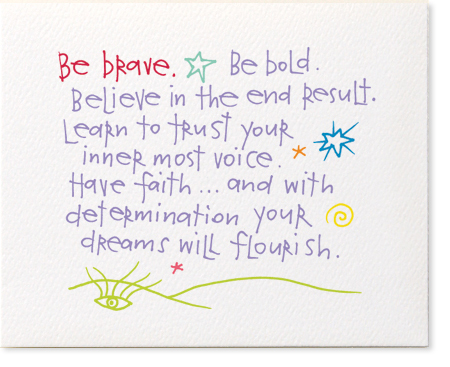 Be brave. Be bold.
Believe in the end result.
Learn to trust your
inner most voice.
Have faith ... and with
determination your
dreams will flourish.